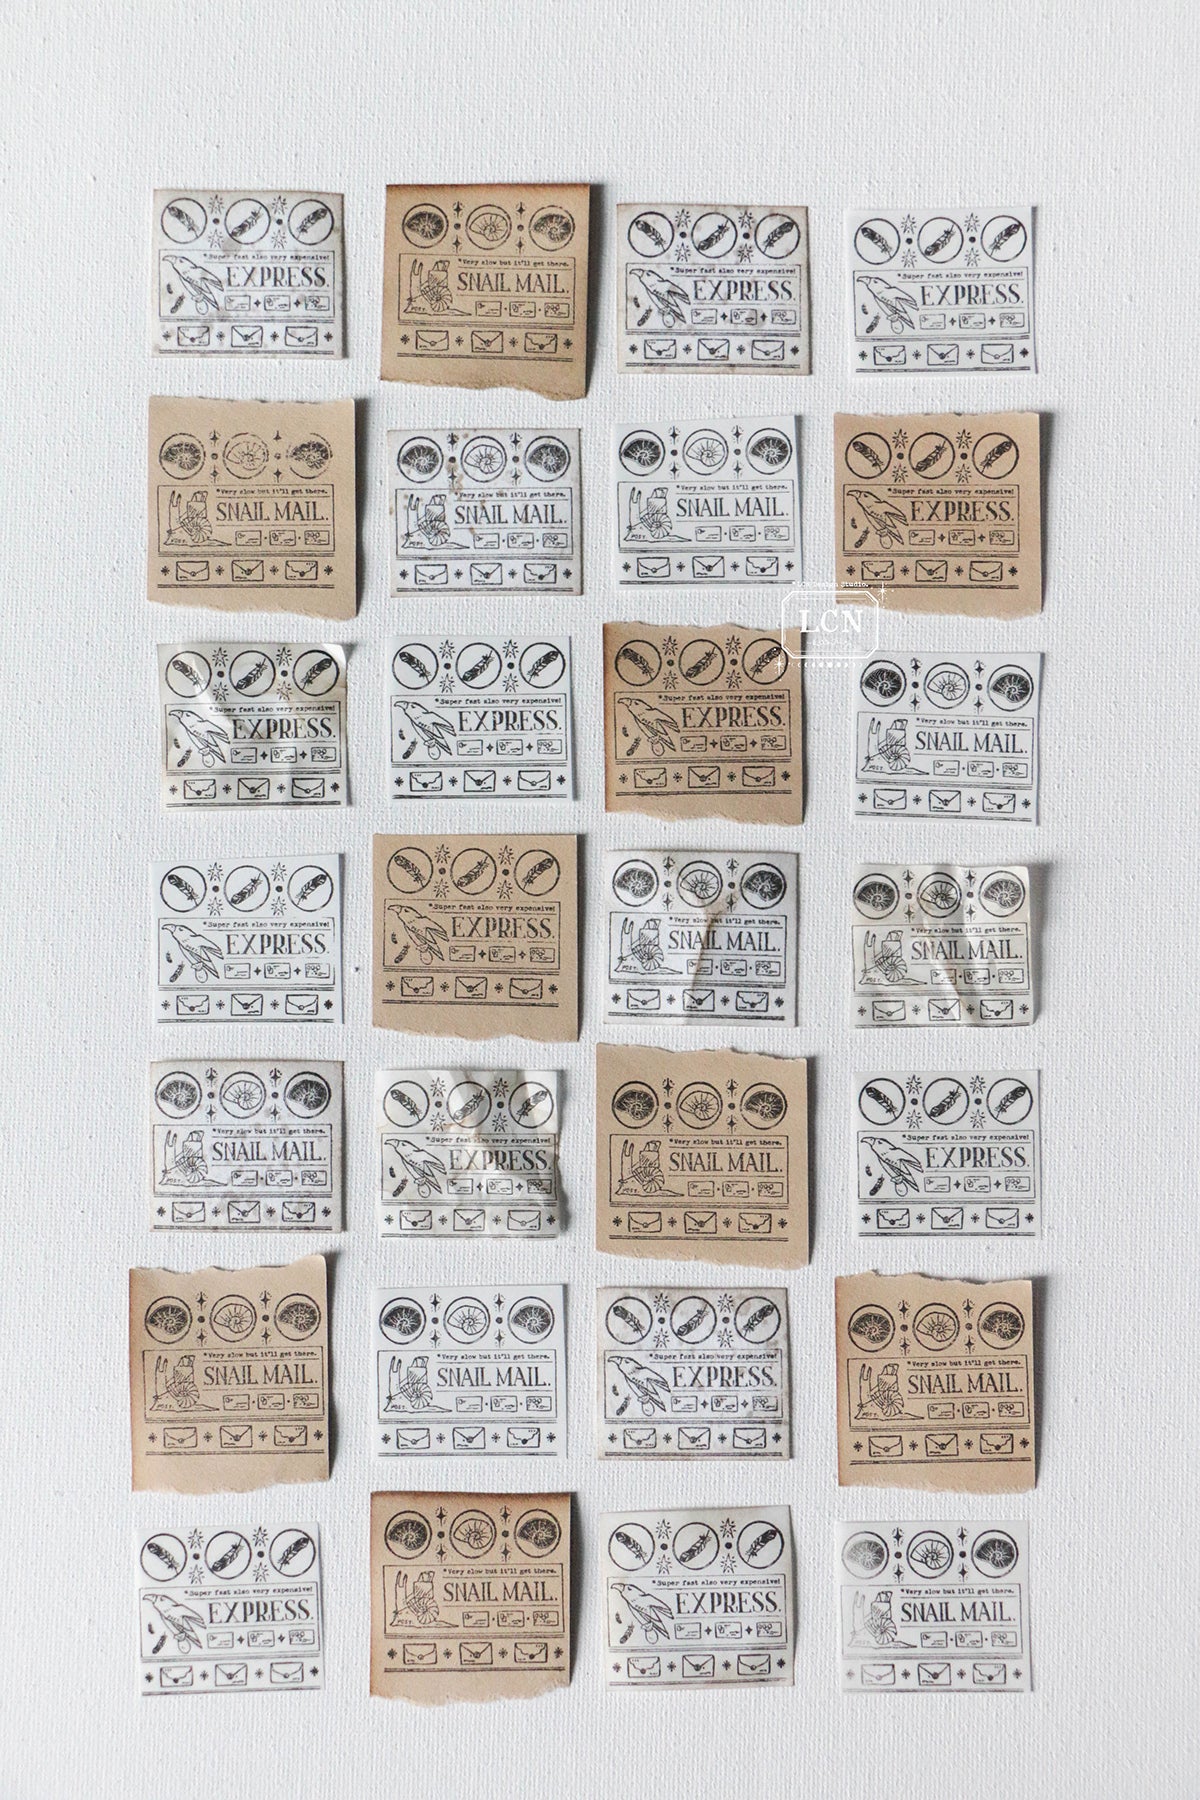 *Super fast also very expensive!
EXPRESS.
*Very slow but it'll get there.
SNAIL MAIL.
POST.
*Super fast also very expensive!
EXPRESS.
*Super fast also very expensive!
EXPRESS.
*Very slow but it'll get there.
SNAIL MAIL.
POST.
*Very slow but it'll get there.
SNAIL MAIL.
POST.
*Very slow but it'll get there.
SNAIL MAIL.
POST.
*Super fast also very expensive!
EXPRESS.
*LCN Design Studio.
LCN
*Super fast also very expensive!
EXPRESS.
*Super fast also very expensive!
EXPRESS.
*Super fast also very expensive!
EXPRESS.
*Very slow but it'll get there.
SNAIL MAIL.
POST.
*Super fast also very expensive!
EXPRESS.
*Super fast also very expensive!
EXPRESS.
*Very slow but it'll get there.
SNAIL MAIL.
POST.
*Very slow but it'll get there.
SNAIL MAIL.
POST.
*Very slow but it'll get there.
SNAIL MAIL.
POST.
*Super fast also very expensive!
EXPRESS.
*Very slow but it'll get there.
SNAIL MAIL.
POST.
*Super fast also very expensive!
EXPRESS.
*Very slow but it'll get there.
SNAIL MAIL.
POST.
*Very slow but it'll get there.
SNAIL MAIL.
POST.
*Super fast also very expensive!
EXPRESS.
*Very slow but it'll get there.
SNAIL MAIL.
POST.
*Super fast also very expensive!
EXPRESS.
*Very slow but it'll get there.
SNAIL MAIL.
POST.
*Super fast also very expensive!
EXPRESS.
*Very slow but it'll get there.
SNAIL MAIL.
POST.